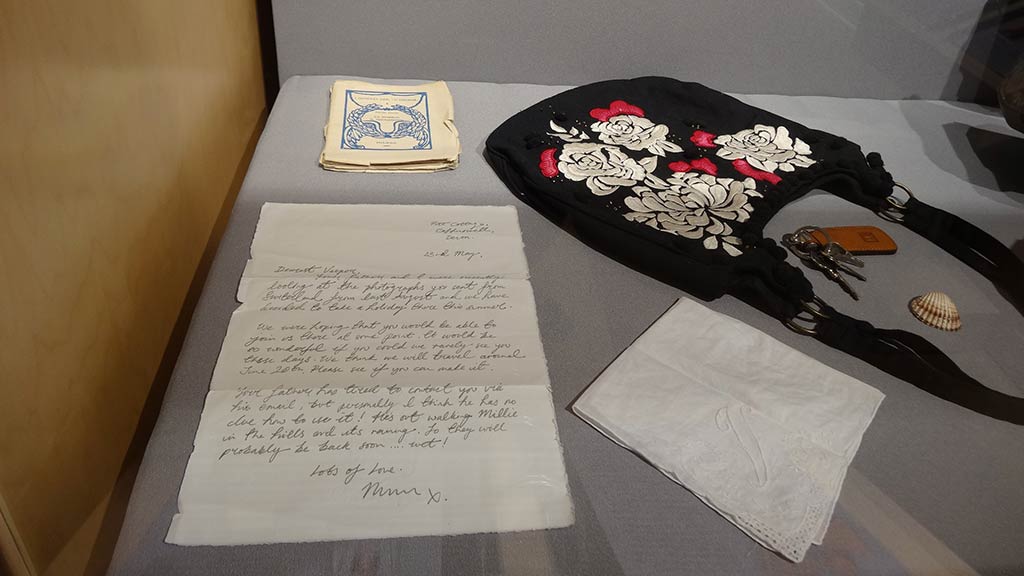 Devon
23rd May.
Dearest Vesper,
Your father and I were recently
looking at the photographs you sent from
Switzerland from last August and we have
decided to take a holiday there this summer.
We were hoping that you would be able to
join us there at one point. It would be
so wonderful if you could we rarely see you
these days. We think we will travel around
June 20th. Please see if you can make it.
Your father has tired to contact you via
his email, but personally I think he has no
clue how to use it! Hes out walking Millie
in the hills and its raining. So they will
probably be back soon .... wet!
Lots of Love.
Mum x.
V